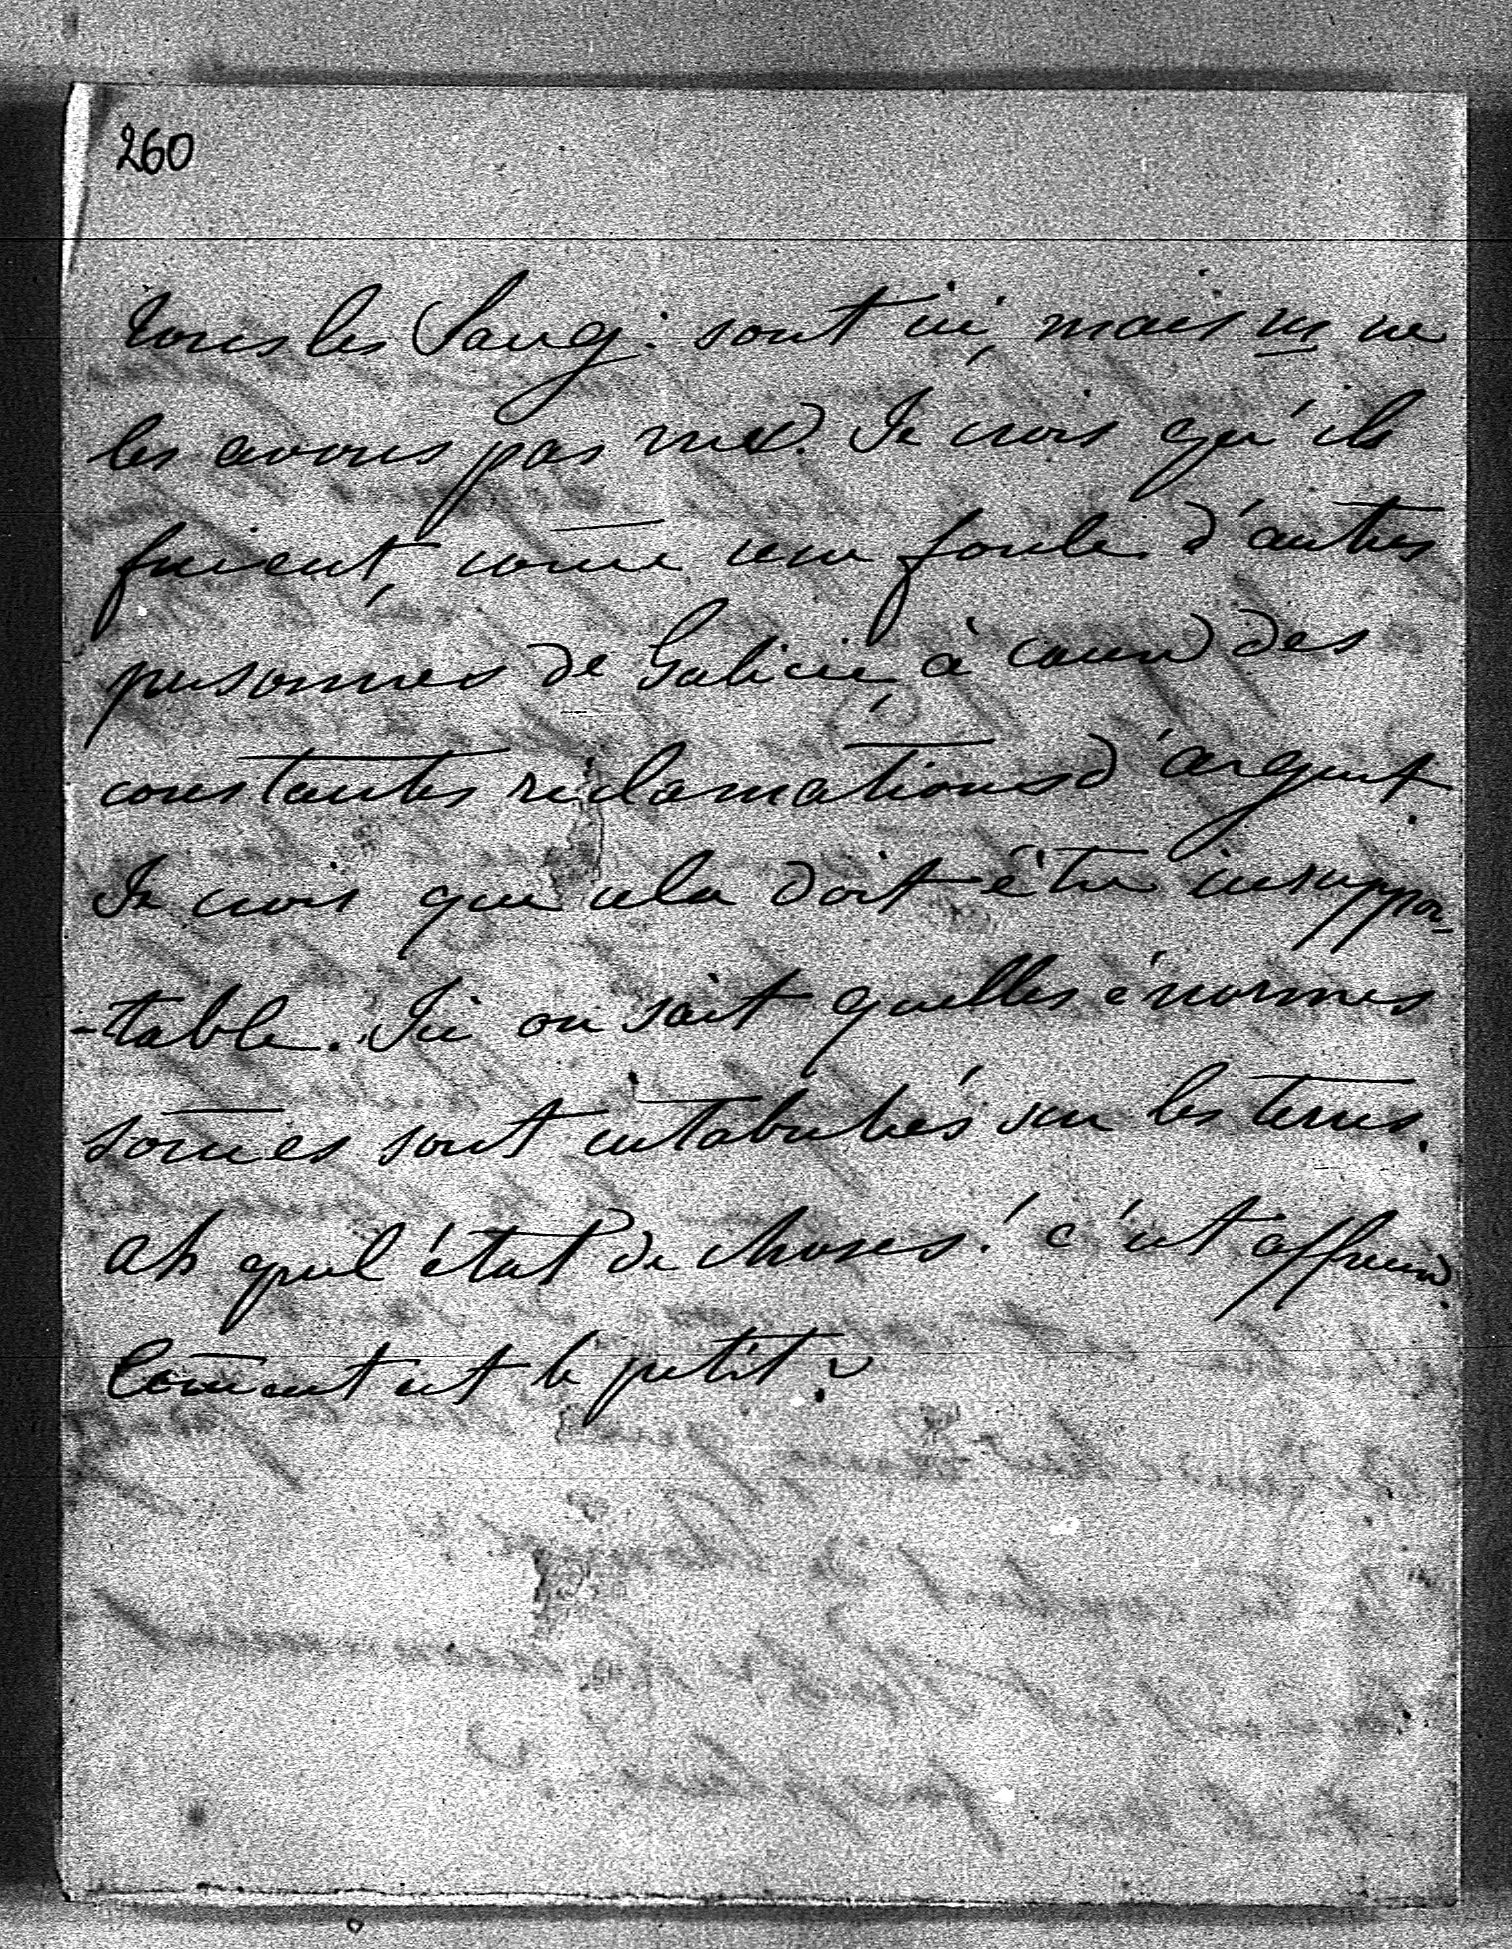 260
tous les Sang. sont ici, mais ns ne
les avons pas vus. Je crois qu'ils
fuient, com̄e une foule d'autres
personnes de Galicie, à cause des
constantes réclamations d'argent.
Je crois que cela doit être insuppor-
-table. Ici on sait quelles énormes
som̄es sont intabulées sur les terres.
Ah quel état de choses! c'est affreux.
Com̄ent est le petit?